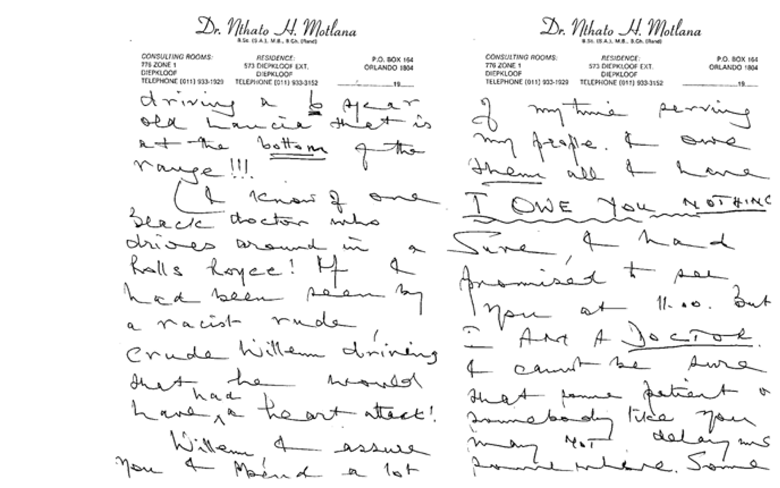 Dr. Nthato H. Motlana
B.Sc. (S.A.), M.B., B.Ch. (Rand)
CONSULTING ROOMS:
776 ZONE 1
DIEPKLOOF
TELEPHONE (011) 933-1929
RESIDENCE:
573 DIEPKLOOF EXT.
DIEPKLOOF
TELEPHONE (011) 933-3152
P.O. BOX 164
ORLANDO 1804
19
driving a 6 year
old Lancia that is
at the bottom of the
range!!!
(I know of one
black doctor who
drives around in a
Rolls Royce! If I
had been seen by
a racist rude,
crude Willem driving
that he would
have had a heart attack!
Willem, I assure
you I spend a lot
Dr. Nthato H. Motlana
B.Sc. (S.A.), M.B., B.Ch. (Rand)
CONSULTING ROOMS:
776 ZONE 1
DIEPKLOOF
TELEPHONE (011) 933-1929
RESIDENCE:
573 DIEPKLOOF EXT.
DIEPKLOOF
TELEPHONE (011) 933-3152
P.O. BOX 164
ORLANDO 1804
19
of my time serving
my people. I owe
them all I have
I OWE YOU NOTHING
Sure, I had
promised to see
you at 11.00. But
I AM A DOCTOR.
I cannot be sure
that some patient o
somebody like you
may NOT delay me
somewhere. Some